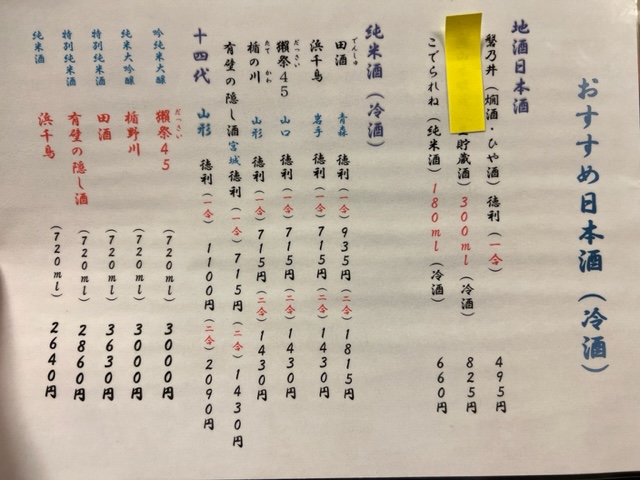 おすすめ日本酒（冷酒）
地酒日本酒
鷲乃井（燗酒・ひや酒）徳利（一合） 495円
貯蔵酒）300ml（冷酒） 825円
こでられね（純米酒）180ml（冷酒） 660円
純米酒（冷酒）
でんしゅ
田酒 青森 徳利（一合）935円（二合）1815円
浜千鳥 岩手 徳利（一合）715円（二合）1430円
だっさい
獺祭45 山口 徳利（一合）715円（二合）1430円
たて かわ
楯の川 山形 徳利（一合）715円（二合）1430円
有壁の隠し酒 宮城 徳利（一合）715円（二合）1430円
十四代 山形 徳利（一合）1100円（二合）2090円
だっさい
吟純米大醸 獺祭45（720ml）3000円
純米大吟醸 楯野川（720ml）3000円
特別純米酒 田酒（720ml）3630円
特別純米酒 有壁の隠し酒（720ml）2860円
純米酒 浜千鳥（720ml）2640円